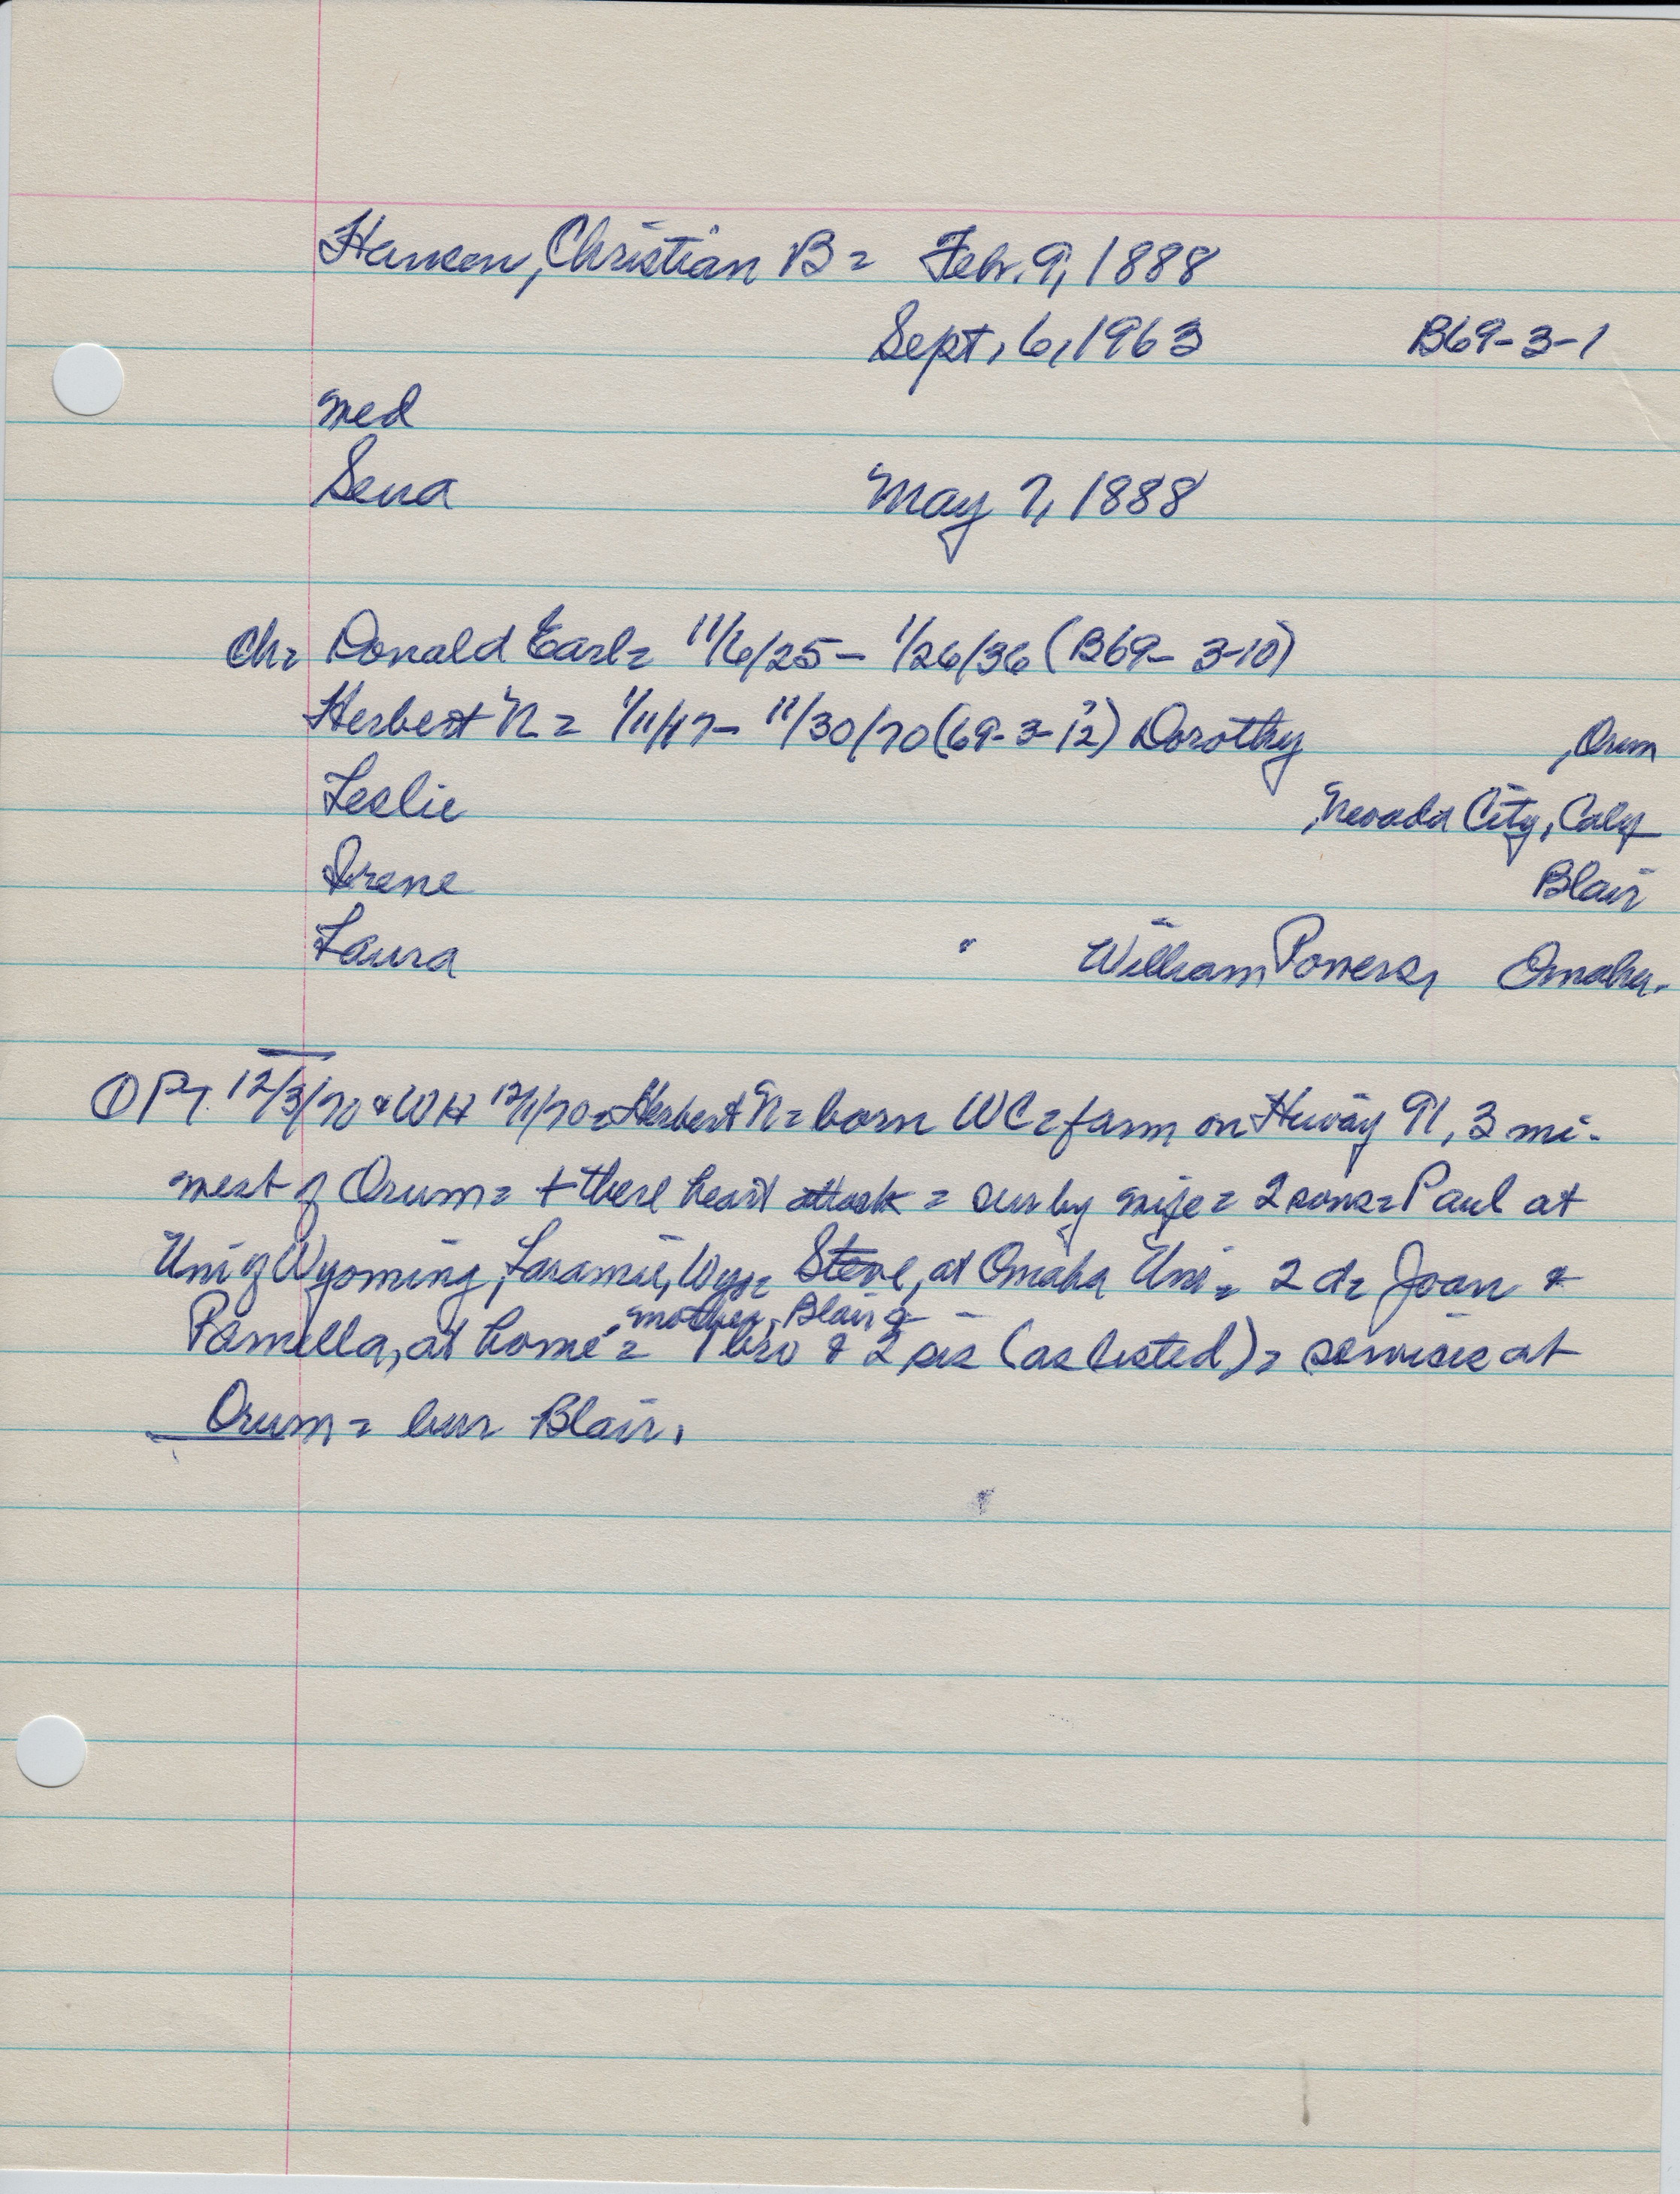 Hansen, Christian B = Feb. 9, 1888
Sept, 6, 1963 B69-3-1
med
Sena May 7, 1888
Ch= Donald Earl= 11/6/25 - 1/26/36 (B69- 3-10)
Herbert N = 1/11/17- 11/30/70 (69-3-12) Dorothy , Orum
Leslie , Nevada City, Calif
Irene Blair
Laura " William Powers, Omaha.
① PT. 12/3/70 & WH 12/1/70= Herbert N= born WC= farm on Hiway 91, 3 mi.
west of Orum= + there heart attack = sur by wife= 2 sons= Paul at
Uni of Wyoming, Laramie, Wyo= Steve, at Omaha Uni = 2 d= Joan &
mother, Blair &
Pamella, at home = 1 bro & 2 sis (as listed)= services at
Orum = bur Blair.